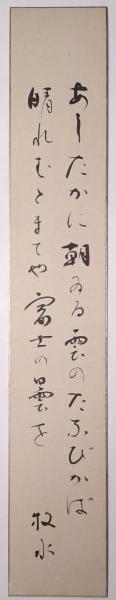 あしたかに朝ゐる雲のたなびかば
晴れむとまてや富士の曇を
牧水